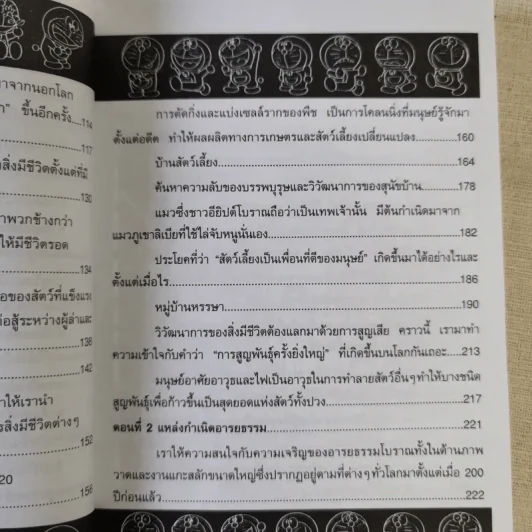 าจากนอกโลก
า" ขึ้นอีกครั้ง....114
117
สิ่งมีชีวิตตั้งแต่ที่มี
130
าพวกช้างกว่า
ให้มีชีวิตรอด
134
อของสัตว์ที่แข็งแรง
่อสู้ระหว่างผู้ล่าและ
138
142
าให้เรานำ
รสิ่งมีชีวิตต่างๆ
152
20
156
การตัดกิ่งและแบ่งเซลล์รากของพืช เป็นการโคลนนิ่งที่มนุษย์รู้จักมา
ตั้งแต่อดีต ทำให้ผลผลิตทางการเกษตรและสัตว์เลี้ยงเปลี่ยนแปลง..........160
บ้านสัตว์เลี้ยง..........164
ค้นหาความลับของบรรพบุรุษและวิวัฒนาการของสุนัขบ้าน..........178
แมวซึ่งชาวอียิปต์โบราณถือว่าเป็นเทพเจ้านั้น มีต้นกำเนิดมาจาก
แมวภูเขาลิเบียที่ใช้ไล่จับหนูนั่นเอง..........182
ประโยคที่ว่า "สัตว์เลี้ยงเป็นเพื่อนที่ดีของมนุษย์" เกิดขึ้นมาได้อย่างไรและ
ตั้งแต่เมื่อไร..........186
หมู่บ้านหรรษา..........190
วิวัฒนาการของสิ่งมีชีวิตต้องแลกมาด้วยการสูญเสีย คราวนี้ เรามาทำ
ความเข้าใจกับคำว่า "การสูญพันธุ์ครั้งยิ่งใหญ่" ที่เกิดขึ้นบนโลกกันเถอะ.....213
มนุษย์อาศัยอาวุธและไฟเป็นอาวุธในการทำลายสัตว์อื่นๆ ทำให้บางชนิด
สูญพันธุ์เพื่อก้าวขึ้นเป็นสุดยอดแห่งสัตว์ทั้งปวง..........217
ตอนที่ 2 แหล่งกำเนิดอารยธรรม..........221
เราให้ความสนใจกับความเจริญของอารยธรรมโบราณทั้งในด้านภาพ
วาดและงานแกะสลักขนาดใหญ่ซึ่งปรากฏอยู่ตามที่ต่างๆ ทั่วโลกมาตั้งแต่เมื่อ 200
ปีก่อนแล้ว..........222